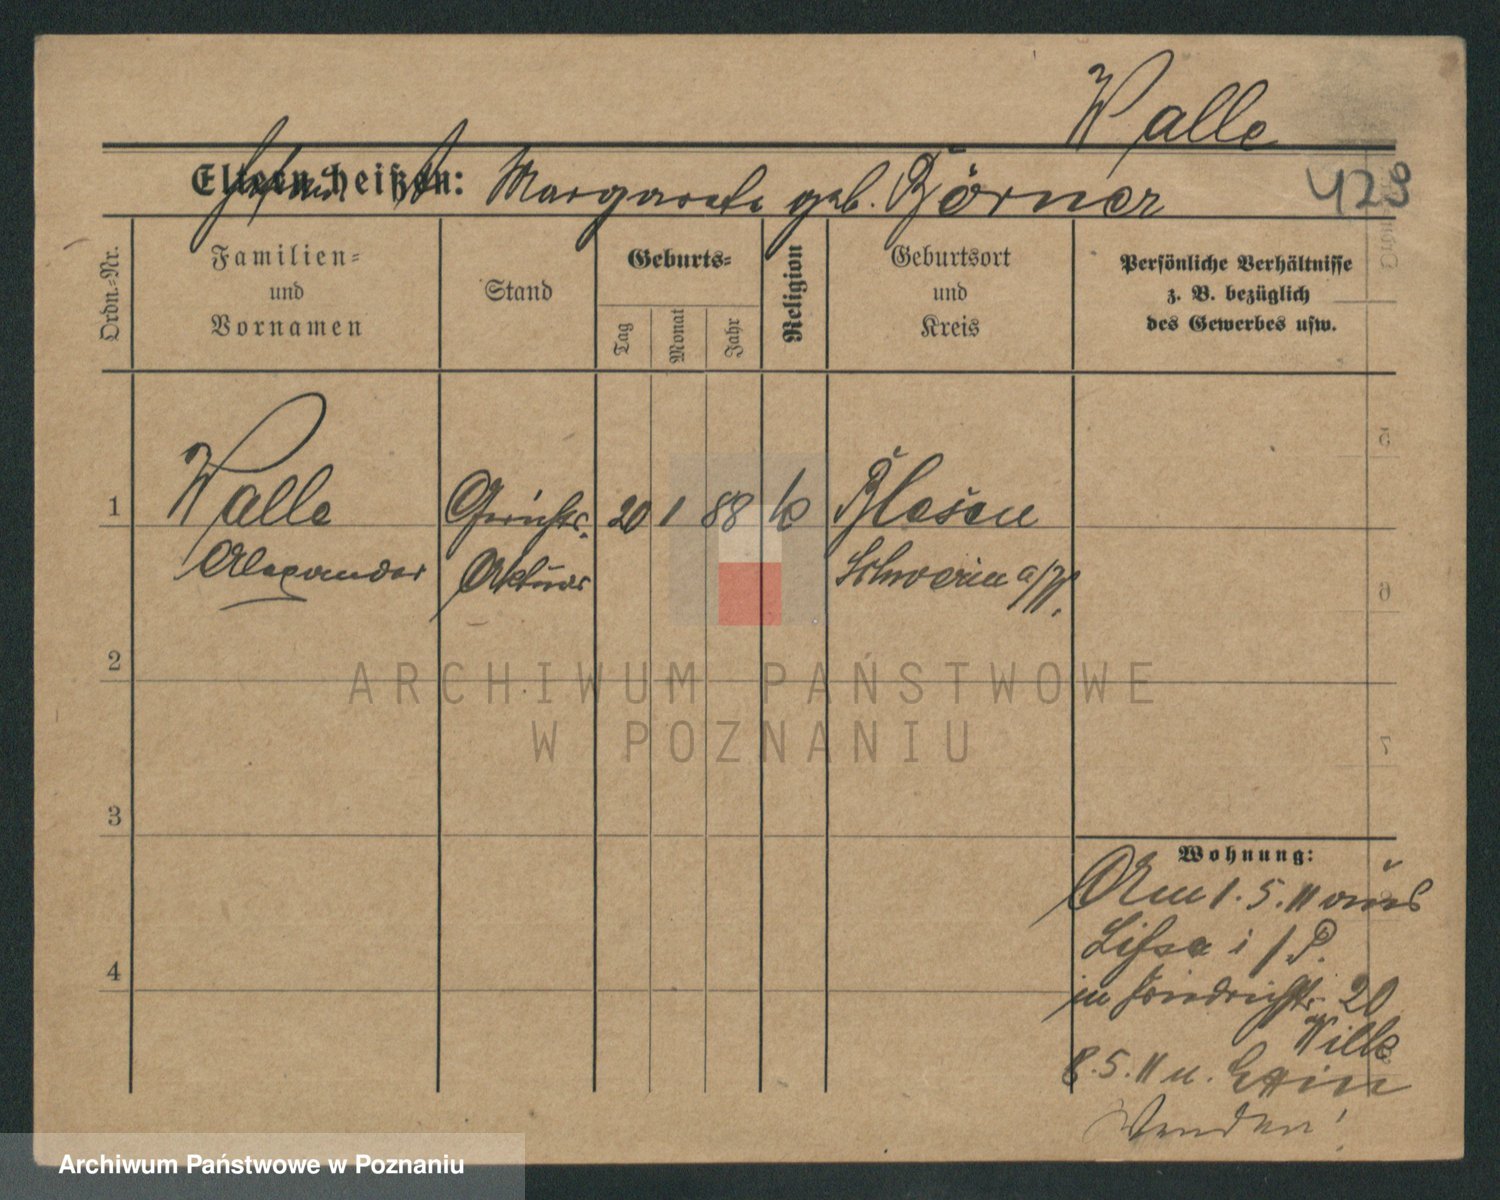 Walle
Eltern heißen: Margarete geb. Börner
423
Ordn.-Nr.
Familien-
und
Vornamen
Stand
Geburts-
Tag
Monat
Jahr
Religion
Geburtsort
und
Kreis
Persönliche Verhältnisse
z. B. bezüglich
des Gewerbes usw.
1 Walle Gerichts- 20 1 88 k Blesen
Alexander Aktuar Schwerin a/W.
2
3
4
Wohnung:
Am 1.5.11 aus
Lissa i/P.
in Friedrichstr. 20
Wille
8.5.11 n.
Wenden!
5
6
7
ARCHIWUM PAŃSTWOWE
W POZNANIU
Archiwum Państwowe w Poznaniu